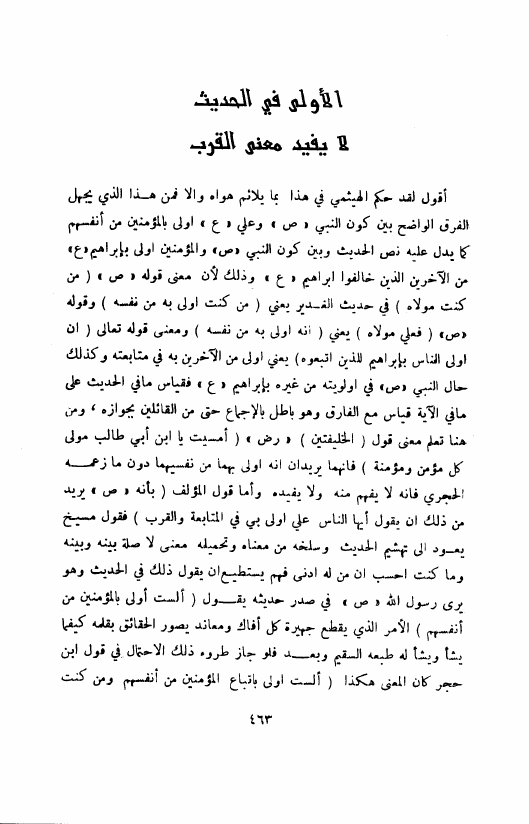 الأولى في الحديث
لا يفيد معنى القرب
أقول لقد حكم الهيثمي في هذا بما يلائم هواه والا فمن هـذا الذي يجهل
الفرق الواضح بين كون النبي « ص » وعلي « ع » اولى بالمؤمنين من أنفسهم
كما يدل عليه نص الحديث وبين كون النبي «ص» والمؤمنين اولى بإبراهيم«ع»
من الآخرين الذين خالفوا ابراهيم « ع » وذلك لأن معنى قوله « ص » ( من
كنت مولاه ) في حديث الغـدير يعني ( من كنت اولى به من نفسه ) وقوله
«ص» ( فعلي مولاه ) يعني ( انه اولى به من نفسه ) ومعنى قوله تعالى ( ان
اولى الناس بإبراهيم للذين اتبعوه) يعني اولى من الآخرين به في متابعته وكذلك
حال النبي «ص» في اولويته من غيره بإبراهيم « ع » فقياس مافي الحديث على
مافي الآية قياس مع الفارق وهو باطل بالإجماع حتى من القائلين بجوازه ، ومن
هنا تعلم معنى قول ( الخليفتين ) « رض » ( أمسيت يا ابن أبي طالب مولى
كل مؤمن ومؤمنة ) فانهما يريدان انه اولى بهما من نفسيهما دون ما زعمـــه
الهجري فانه لا يفهم منه ولا يفيده وأما قول المؤلف ( بأنه « ص » يريد
من ذلك ان يقول أيها الناس علي اولى بي في المتابعة والقرب ) فقول مسيخ
يعـود الى تهشيم الحديث وسلخه من معناه وتحميله معنى لا صلة بينه وبينه
وما كنت احسب ان من له ادنى فهم يستطيـع ان يقول ذلك في الحديث وهو
يرى رسول الله « ص » في صدر حديثه يقــول ( ألست أولى بالمؤمنين من
أنفسهم ) الأمر الذي يقطع جهيرة كل أفاك ومعاند يصور الحقائق بقلمه كيفما
يشأ ويشأ له طبعه السقيم وبعــد فلو جاز طروه ذلك الاحتمال في قول ابن
حجر كان المعنى هكذا ( ألست اولى باتباع المؤمنين من أنفسهم ومن كنت
٤٦٣